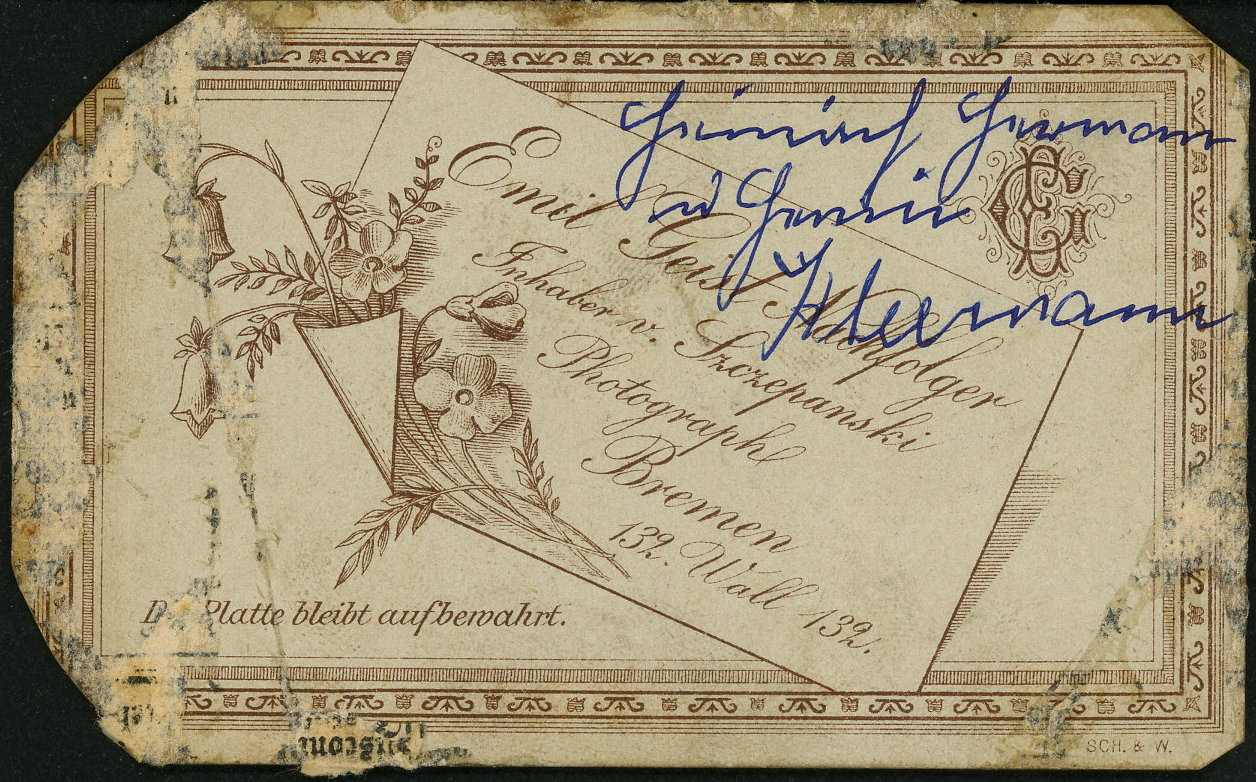 Heinrich Hermann
u
Ahlermann
Emil Geist Nachfolger
Inhaber v. Szczepanski
Photograph
Bremen
132. Wall 132.
Platte bleibt aufbewahrt.
SCH. & W.